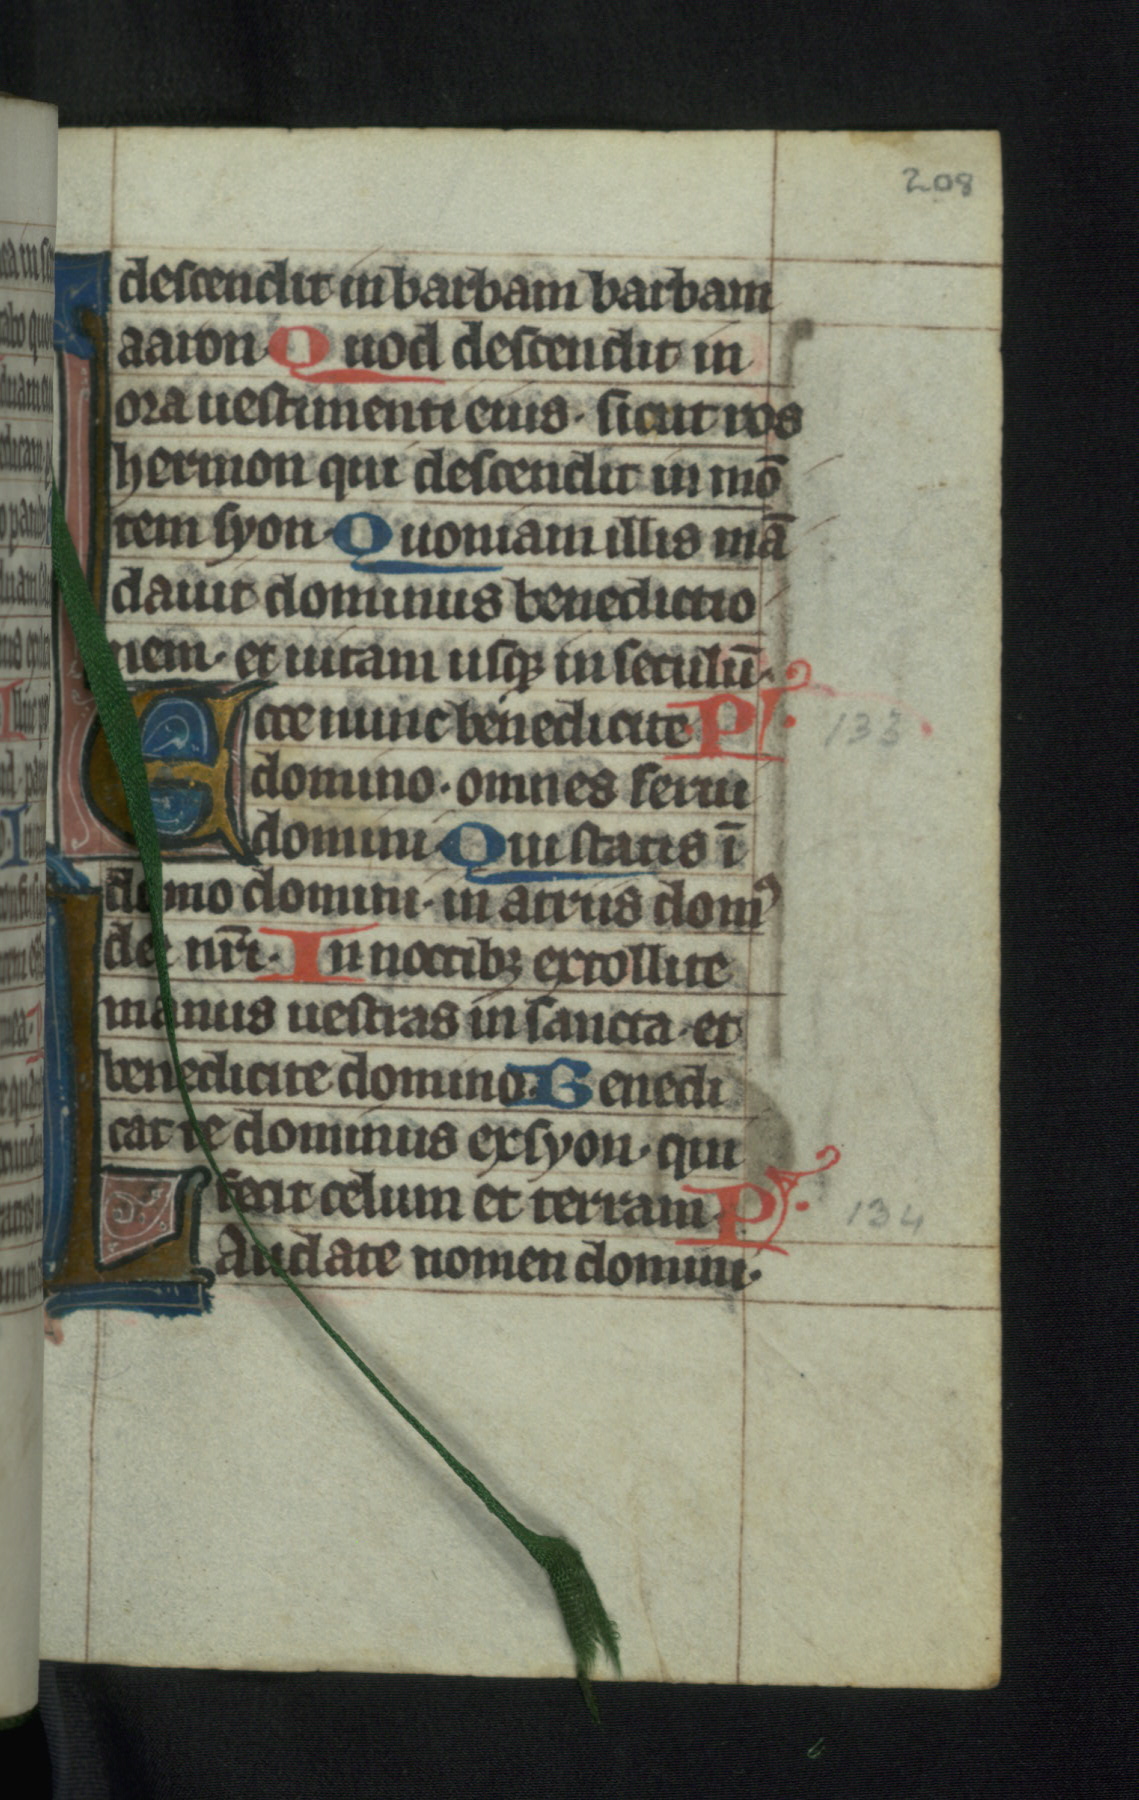 208
descendit in barbam barbam
aaron Quod descendit in
ora uestimenti eius · sicut ros
hermon qui descendit in mō
tem syon · Quoniam illis mā
dauit dominus benedictio
nem · et uitam usqꝫ in seculū ·
Ecce nunc benedicite Ps · 133
domino · omnes serui
domini Qui statis ī
domo domini · in atriis domꝰ
dei nr̄i · In noctibꝫ extollite
manus uestras in sancta · et
benedicite domino · Benedi
cat te dominus ex syon · qui
fecit celum et terram · Ps · 134
Laudate nomen domini ·